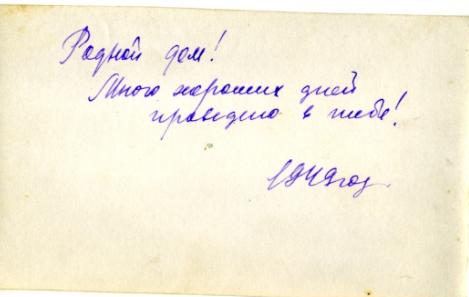 Родной дом!
Много хороших дней
проведено в тебе!
1949 год